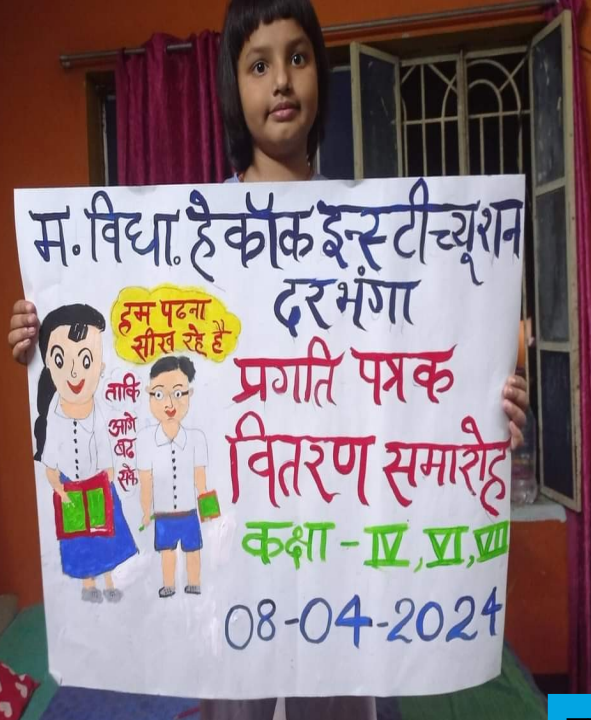 म. विधा. हे कॉक इन्स्टीच्यूशन
दरभंगा
हम पढना
सीख रहे है
ताकि
आगे
बढ
सके
प्रगति पत्रक
वितरण समारोह
कक्षा - IV, VI, VII
08-04-2024